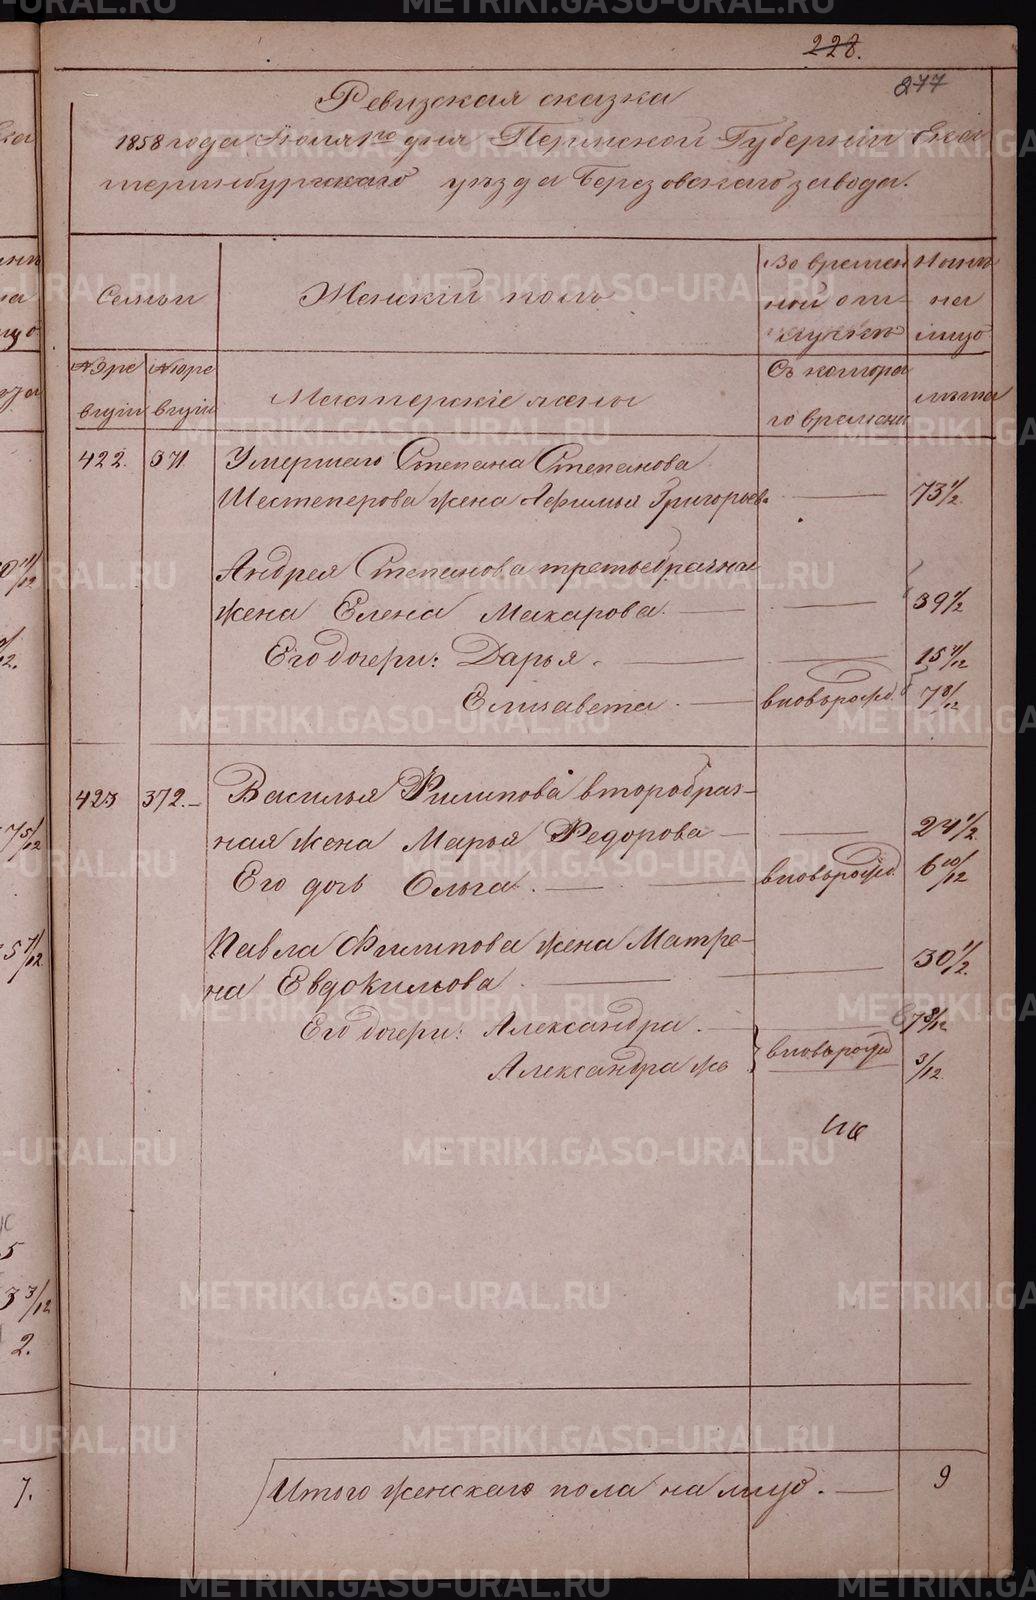 228.
277
Ревизская сказка
1858 года Июля 1го дня Пермской Губернiи Ека
теринбургскаго уѣзда Березовскаго завода.
Семьи
Женскiй полъ
Во времен
ной от-
лучкѣ
Нынѣ
на
лицо
№ 9 ре
визiи
№ 10 ре
визiи
Мастерскiе жены
Съ котора
го времени
лѣта
422. 371. Умершаго Степана Степанова
Шестеперова жена Афимья Григорьев 73 1/2
Андрея Степанова третьебрачная
жена Елена Макарова. 39 1/2
Его дочери: Дарья. 15 4/12
Елисавета. вновьрожд. 7 8/12
423 372. Василья Филипова второбрач-
ная жена Марья Федорова 24 1/2
Его дочь Ольга. вновьрожд. 6 10/12
Павла Филипова жена Матре-
на Евдокимова 30 1/2
Его дочери: Александра. 7 8/12
Александра жъ вновьрожд 3/12
Итого женскаго пола на лицо. 9
METRIKI.GASO-URAL.RU